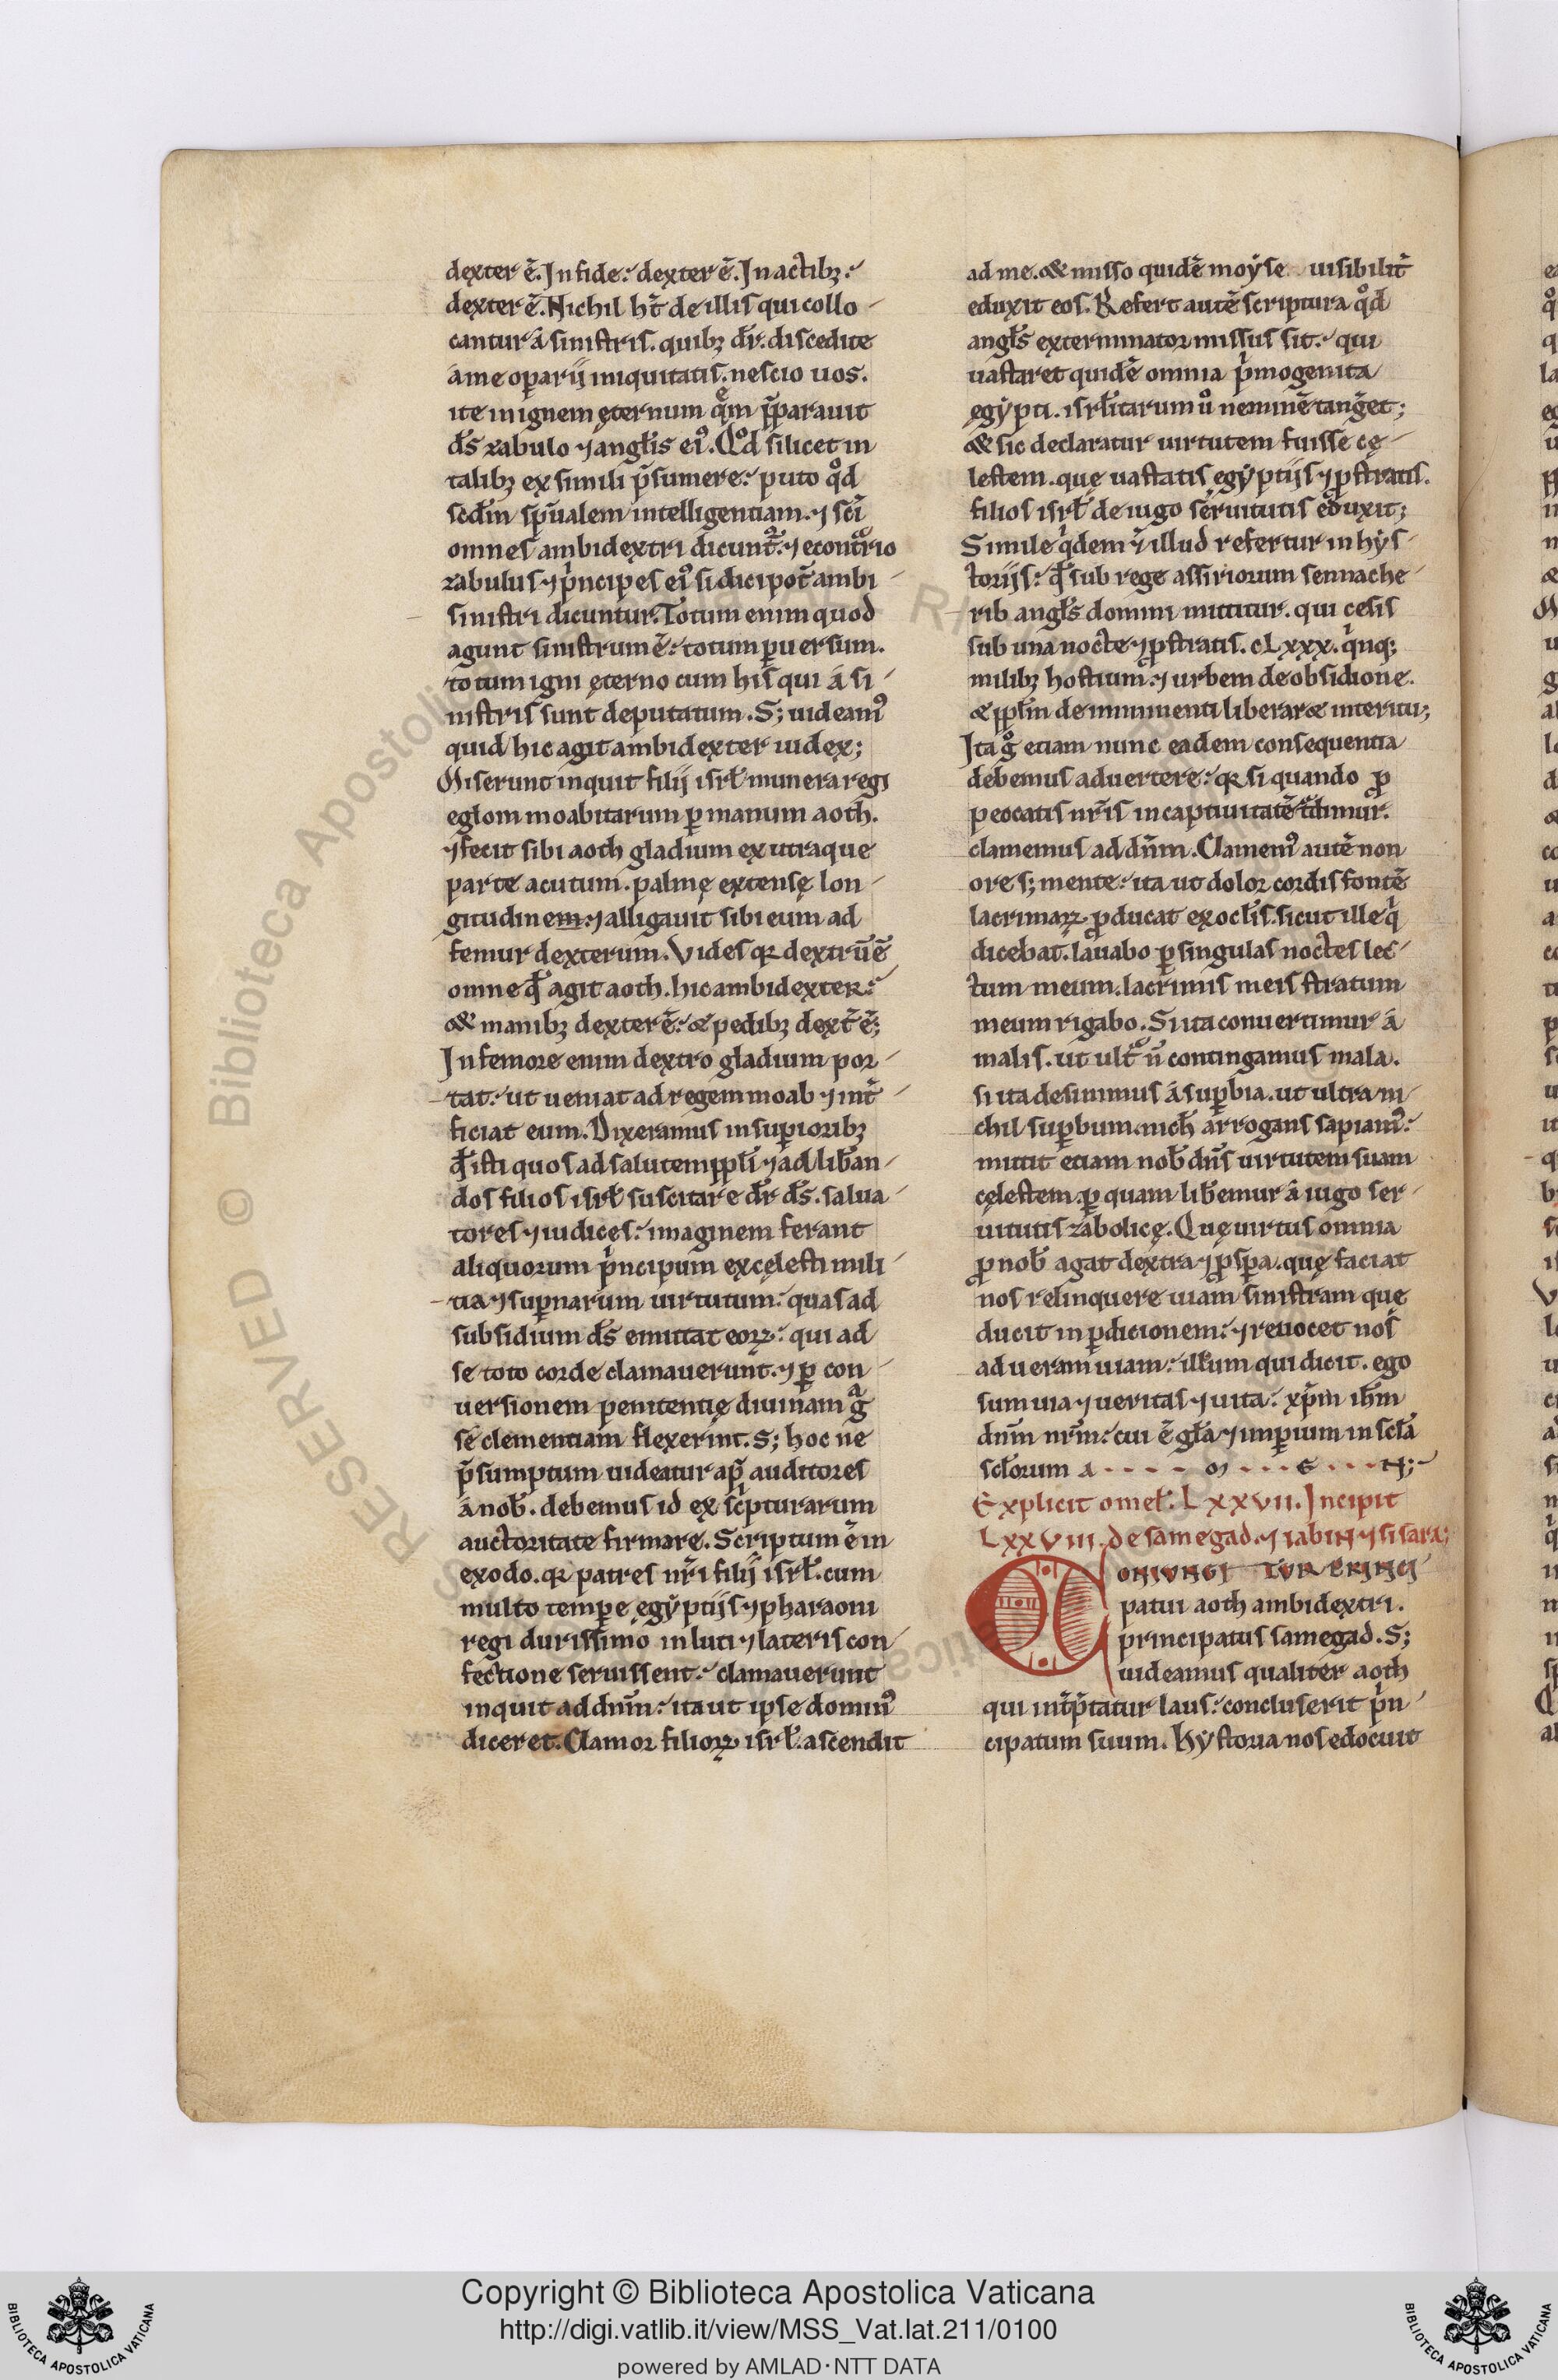 dexter ē. In fide: dexter ē. In actibꝫ:
dexter ē. Nichil hт̄ de illis qui collo-
cantur á sinistris. quibꝫ dr̄. discedite
á me oꝑarij iniquitatis. nescio uos.
ite in ignem ęternum quem p̄parauit
dс̄ zabulo ⁊ angl̄is eiꝰ. Qd̊ silicet in
talibꝫ ex simili p̄sumere: puto qd̊
scd̄m sp̄ualem intelligentiam. ⁊ sc̄i
omnes ambidextri dicunt᷑. ⁊ econtͦrio
zabulus ⁊ pͥncipes eiꝰ si dici pot̄ ambi-
sinistri dicuntur. Totum enim quod
agunt sinistrum ē: totum ꝑuersum.
totum igni ęterno cum his qui á si-
nistris sunt deputatum. S; uideamꝰ
quid hic agit ambidexter iudex;
Miserunt inquit filij isrl̄ munera regi
eglom moabitarum ꝑ manum aoth.
⁊ fecit sibi aoth gladium ex utraque
parte acutum. palmę extensę lon-
gitudinem. ⁊ alligauit sibi eum ad
femur dexterum. Vides qꝛ dextrū ē
omne qđ agit aoth. hic ambidexter:
& manibꝫ dexter ē: & pedibꝫ dext̄ ē;
In femore enim dextro gladium por-
tat: ut ueniat ad regem moab ⁊ int̄-
ficiat eum. Dixeramus in suꝑioribꝫ
qđ isti quos ad salutem ppl̄i ⁊ ad lib̄an-
dos filios isrl̄ suscitare dr̄ dс̄. salua-
tores ⁊ iudices: imaginem ferant
aliquorum pͥncipum ex cęlesti mili-
tia ⁊ suꝑnarum uirtutum: quas ad
subsidium dс̄ emittat eoꝝ: qui ad
se toto corde clamauerunt. ⁊ ꝑ con-
uersionem penitentię diuinam gͣ
se clementiam flexerint. S; hoc ne
p̄sumptum uideatur ap̄ auditores
á nob̄. debemus id ex scͥpturarum
auctoritate firmare. Scriptum ē in
exodo. qꝛ patres nr̄i filij isrl̄. cum
multo temꝑe ęgyptijs ⁊ pharaoni
regi durissimo in luti ⁊ lateris con-
fectione seruissent: clamauerunt
inquit ad dnm̄: ita ut ipse dominꝰ
diceret. Clamor filioꝝ isrl̄. ascendit
ad me. & misso quidē moyse uisibilit᷑
eduxit eos. Refert autē scriptura qd̊
angl̄s exterminator missus sit: qui
uastaret quidē omnia pͥmogenita
ęgypti. isrl̄itarum uͦ neminē tang̃et;
& sic declaratur uirtutem fuisse cę-
lestem. quę uastatis ęgyptijs ⁊ ꝓstratis.
filios isrl̄ de iugo seruitutis eduxit;
Simile qͥdem ⁊ illud refertur in hys-
torijs: qđ sub rege assiriorum sennache-
rib angl̄s domini mittitur. qui cesis
sub una nocte ⁊ ꝓstratis. cLxxx. qͥnqꝫ
milibꝫ hostium. ⁊ urbem de obsidione.
& ppl̄m de imminenti liberar& interitu;
Ita gͦ etiam nunc eadem consequentia
debemus aduertere: qꝛ si quando ꝓ
peccatis nr̄is in captiuitatē tͣdimur.
clamemus ad dn̄m. Clamemꝰ autē non
ore s; mente: ita ut dolor cordis fontē
lacrimaꝝ ꝓducat ex ocl̄is. sicut ille qͥ
dicebat. lauabo ꝑ singulas noctes lec-
tum meum. lacrimis meis stratum
meum rigabo. Si ita conuertimur á
malis. ut ultͦ n̄ contingamus mala.
si ita desinimus á suꝑbia. ut ultra ni-
chil suꝑbum. nich̄ arrogans sapiamꝰ:
mittit etiam nob̄ dn̄s uirtutem suam
cęlestem. ꝑ quam lib̄emur á iugo ser-
uitutis zabolicę. Quę uirtus omnia
ꝓ nob̄ agat dextra ⁊ ꝓsꝑa. quę faciat
nos relinquere uiam sinistram que
ducit in ꝑdicionem: ⁊ reuocet nos
ad ueram uiam: illum qui dicit. ego
sum uia ⁊ ueritas ⁊ uita: xp̄m ihm̄
dnm̄ nrm̄: cui ē gl̄a ⁊ imꝑium in scl̄a
scl̄orum A . . . . M . . . E . . . N;
Explicit omel̄. LXXVII. Incipit
LXXVIII. de samegad. ⁊ iabin ⁊ sisara;
CONIUNGITUR PRINCI
patui aoth ambidextri.
principatus samegad. S;
uideamus qualiter aoth
qui int̄p̄tatur laus: concluserit pͥn-
cipatum suum. Hystoria nos edocuit
Copyright © Biblioteca Apostolica Vaticana
http://digi.vatlib.it/view/MSS_Vat.lat.211/0100
powered by AMLAD・NTT DATA
BIBLIOTECA APOSTOLICA VATICANA
BIBLIOTECA APOSTOLICA VATICANA